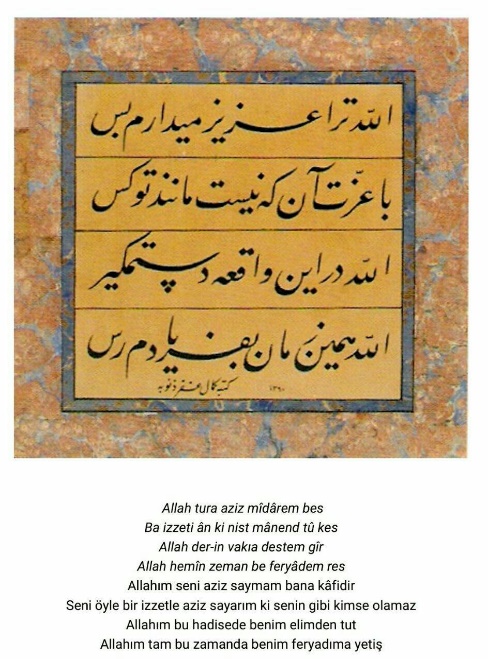 الله ترا عزیز میدارم بس
با عزّت آن که نیست مانند تو کس
الله در این واقعه دستم گیر
الله همین زمان بفریادم رس
کتبه کمال غفر ذنوبه
Allah tura aziz mîdârem bes
Ba izzeti ân ki nist mânend tû kes
Allah der-in vakıa destem gîr
Allah hemîn zeman be feryâdem res
Allahım seni aziz saymam bana kâfidir
Seni öyle bir izzetle aziz sayarım ki senin gibi kimse olamaz
Allahım bu hadisede benim elimden tut
Allahım tam bu zamanda benim feryadıma yetiş